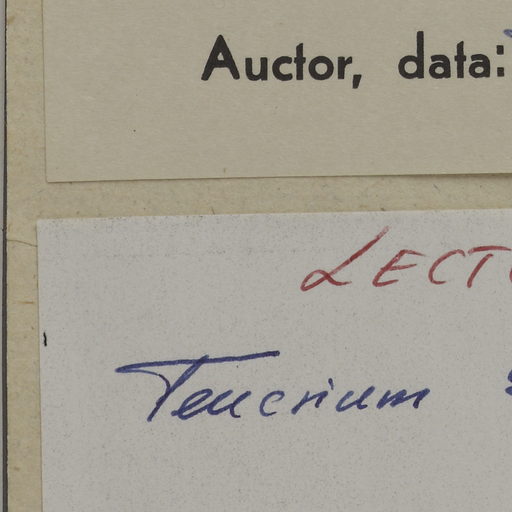 Auctor, data:
LECT
Teucrium